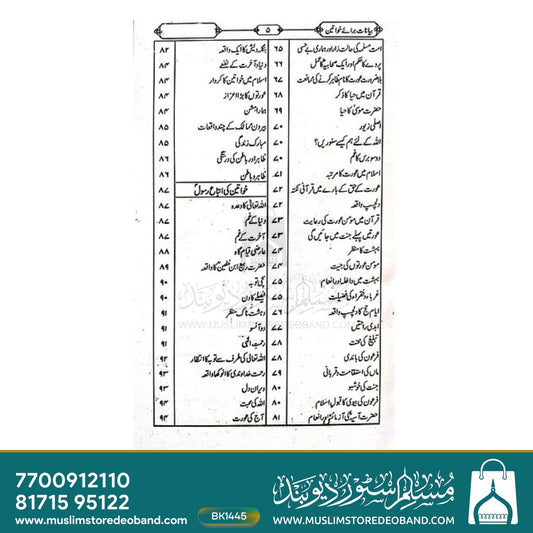 بیانات برائے خواتین
۵
امت مسلمہ کی حالت زار اور ہماری بے حسی ۶۵
پردے کا حکم اور ایک صحابیہ کا عمل ۶۶
بلا ضرورت عورت کا نام ظاہر کرنے کی ممانعت ۶۷
قرآن میں حیا کا ذکر ۶۸
حضرت موسیٰ کا حیا ۶۹
اصلی زیور ۷۰
اللہ کے لئے ہم کیسے سنوریں؟ ۷۰
دو سو برس کا غم ۷۰
اسلام میں عورت کا مرتبہ ۷۱
عورت کے حق کے بارے میں قرآنی نکتہ ۷۲
دلچسپ واقعہ ۷۲
قرآن میں مؤمن عورت کی رعایت ۷۳
عورتیں پہلے جنت میں جائیں گی ۷۳
بہشت کا منظر ۷۴
مؤمن عورتوں کی جیت ۷۴
بہشت میں داخلہ اور انعام ۷۵
غرباء و فقراء کی فضیلت ۷۵
ایام حج کا واقعہ ۷۶
ابدی راحتیں ۷۷
تبلیغ کی محنت ۷۷
فرعون کی باندی ۷۸
ماں کی استقامت و قربانی ۷۹
جنت کی خوشبو ۸۰
فرعون کی بیوی کا قبول اسلام ۸۰
حضرت آسیہ کی آزمائش اور انعام ۸۱
بنگلہ دیش کا ایک واقعہ ۸۲
دنیا و آخرت کے نقشے ۸۳
اسلام میں خواتین کا کردار ۸۴
عورتوں کا بڑا اعزاز ۸۴
ہمارا مشن ۸۴
بیرون ممالک کے چند واقعات ۸۵
مبارک زندگی ۸۵
ظاہر اور باطن کی درستگی ۸۶
ظاہر و باطن ۸۶
خواتین کی اتباع رسول ۸۷
اللہ تعالیٰ کا وعدہ ۸۷
دنیا کے غم ۸۷
آخرت کے غم ۸۷
عارضی قیام گاہ ۸۸
حضرت ربیع ابن خثیم کا واقعہ ۸۹
سچی توبہ ۹۰
فیصلے کا دن ۹۰
دہشت ناک منظر ۹۱
دو آنسو ۹۱
رحمت الٰہی ۹۱
اللہ تعالیٰ کی طرف سے توبہ کا انتظار ۹۲
رحمت خداوندی کا انوکھا واقعہ ۹۳
ویران دل ۹۳
اللہ کی محبت ۹۴
آج کی عورت ۹۴
مسلم سٹور دیوبند
WWW.MUSLIMSTOREDEOBAND.COM
7700912110
81715 95122
www.muslimstoredeoband.com
BK1445
مسلم سٹور دیوبند
WWW.MUSLIMSTOREDEOBAND.COM